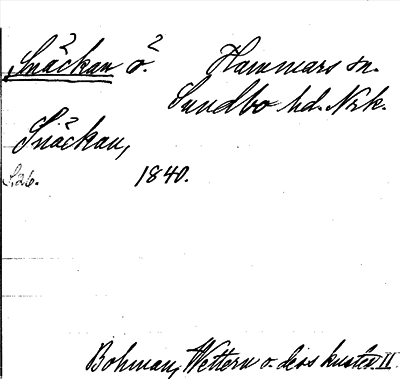 Snäckan ö. Hammars sn.
Sundbo hd. Nrk.
Snäckan,
S. 26. 1840.
Bohman, Wettern o. dess kuster II